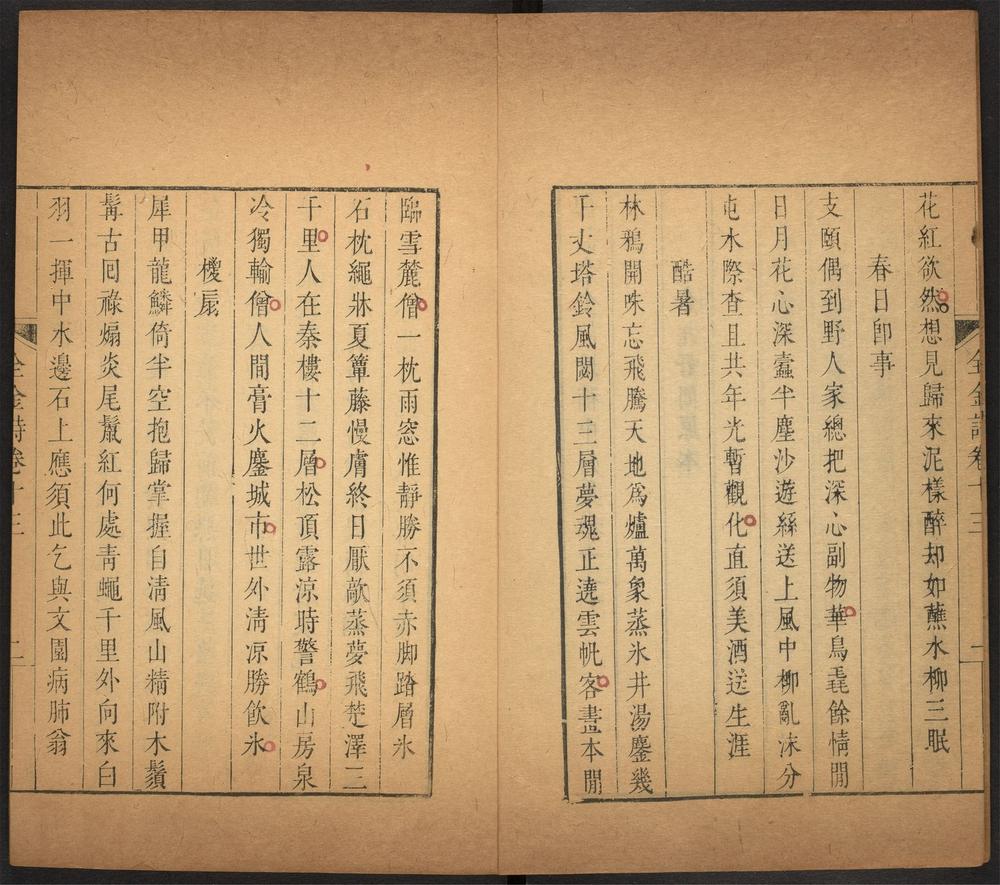 全金詩卷十三
花紅欲然想見歸來泥樣醉却如蘸水柳三眠
春日即事
支頤偶到野人家總把深心副物華鳥毳餘情閒
日月花心深蠹半塵沙遊絲送上風中柳亂沫分
屯木際查且共年光暫觀化直須美酒送生涯
酷暑
林鴉開咮忘飛騰天地爲爐萬象蒸氷井湯鏖幾
千丈塔鈴風閟十三層夢魂正遶雲帆客畫本閒
臨雪麓僧一枕雨窓惟靜勝不須赤脚踏層氷
石枕繩牀夏簟藤慢膚終日厭歊蒸夢飛楚澤三
千里人在秦樓十二層松頂露凉時警鶴山房泉
冷獨輸僧人間膏火鏖城市世外清凉勝飲氷
椶扇
犀甲龍鱗倚半空抱歸掌握自清風山精附木鬚
髯古回祿煽炎尾鬣紅何處靑蠅千里外向來白
羽一揮中水邊石上應須此乞與文園病肺翁
全金詩卷十三
二